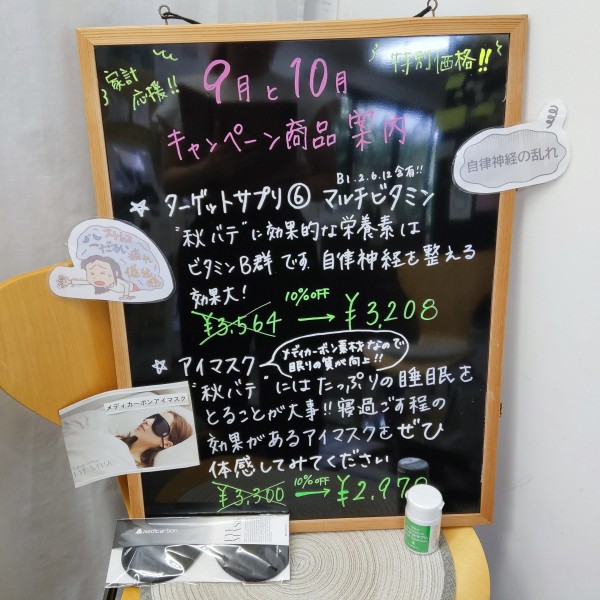 家計
応援!!
特別価格!!
9月と10月
キャンペーン商品 案内
自律神経の乱れ
B1.2.6.12含有!!
☆ ターゲットサプリ⑥ マルチビタミン
"秋バテ"に効果的な栄養素は
ビタミンB群です。自律神経を整える
効果大!
¥3,564 10%OFF → ¥3,208
☆ アイマスク
メディカーボン素材なので
眠りの質が向上!!
"秋バテ"にはたっぷりの睡眠を
とることが大事!!寝過ごす程の
効果があるアイマスクをぜひ
体感してみてください
¥3,300 10%OFF → ¥2,970
メディカーボンアイマスク
medicarbon